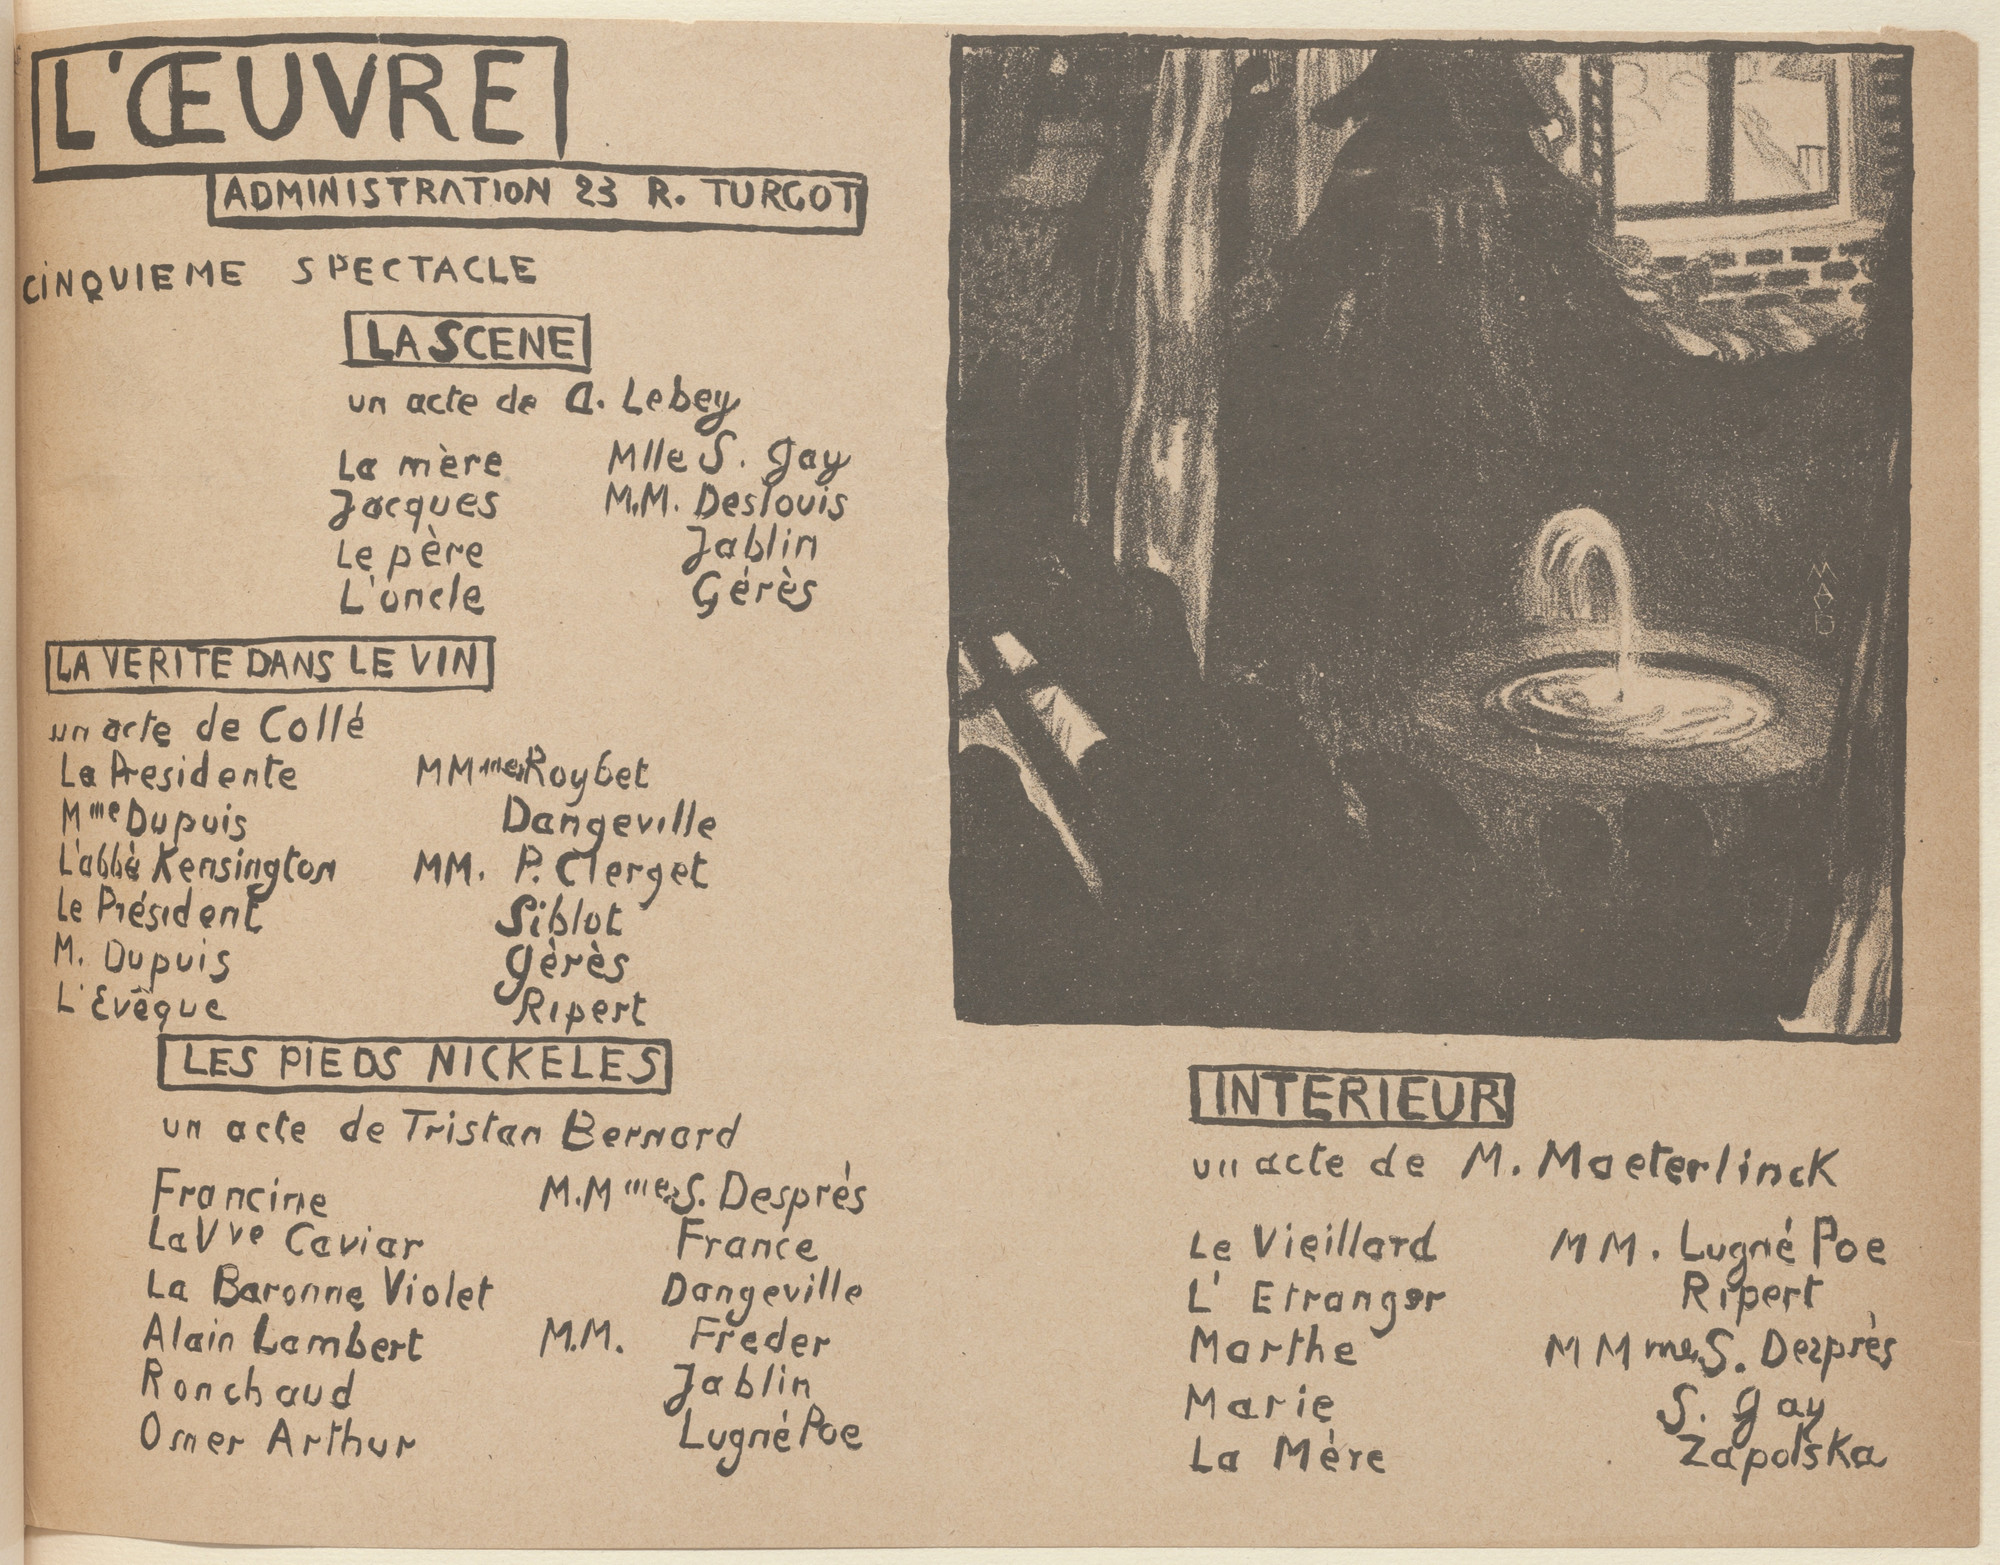 L'ŒUVRE
ADMINISTRATION 23 R. TURGOT
CINQUIEME SPECTACLE
LA SCENE
un acte de A. Lebey
La mère Mlle S. Gay
Jacques M.M. Deslouis
Le père Jablin
L'oncle Gérès
LA VERITE DANS LE VIN
un acte de Collé
La Presidente MMmes Roybet
Mme Dupuis Dangeville
L'abbè Kensington MM. P. Clerget
Le Président Siblot
M. Dupuis Gèrès
L'Evêque Ripert
LES PIEDS NICKELES
un acte de Tristan Bernard
Francine M.Mmes S. Després
La Vve Caviar France
La Baronne Violet Dangeville
Alain Lambert M.M. Freder
Ronchaud Jablin
Omer Arthur Lugné Poe
MAD
INTERIEUR
un acte de M. Maeterlinck
Le Vieillard MM. Lugné Poe
L'Etranger Ripert
Marthe MMmes S. Desprès
Marie S. Gay
La Mère Zapolska